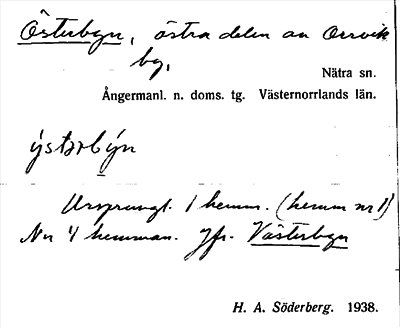 Österbyn, östra delen av Orrvik
by,
Nätra sn.
Ångermanl. n. doms. tg. Västernorrlands län.
ýstərbýn
Ursprungl. 1 hemm. (hemm nr 1)
Nu 4 hemman. Jfr. Västerbyn
H. A. Söderberg. 1938.